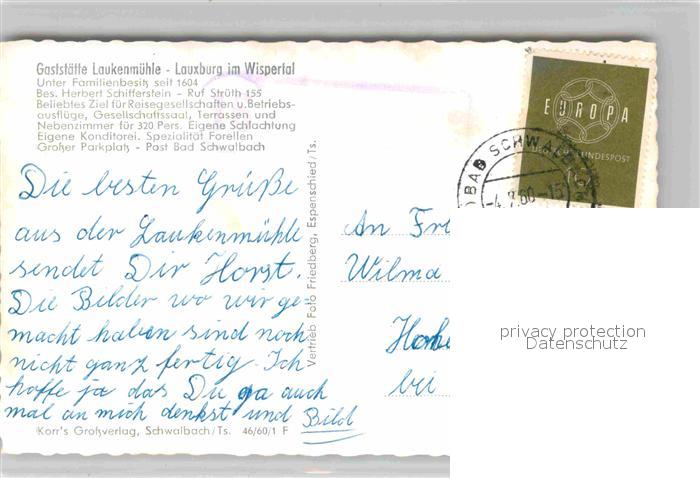 Gaststätte Laukenmühle - Lauxburg im Wispertal
Unter Familienbesitz seit 1604
Bes. Herbert Schifferstein - Ruf Strüth 155
Beliebtes Ziel für Reisegesellschaften u. Betriebs-
ausflüge, Gesellschaftssaal, Terrassen und
Nebenzimmer für 320 Pers. Eigene Schlachtung
Eigene Konditorei. Spezialität Forellen
Großer Parkplatz - Post Bad Schwalbach
Die besten Grüße
aus der Laukenmühle
sendet Dir Horst.
Die Bilder wo wir ge-
macht haben sind noch
nicht ganz fertig. Ich
hoffe ja das Du ga auch
mal an mich denkst und Bild
Korr's Großverlag, Schwalbach/Ts. 46/60/1 F
Vertrieb Foto Friedberg, Espenschied/Ts.
EUROPA
BUNDESPOST
BAD SCHWAL
-4.7.60-15
An Fr
Wilma
bei
privacy protection
Datenschutz